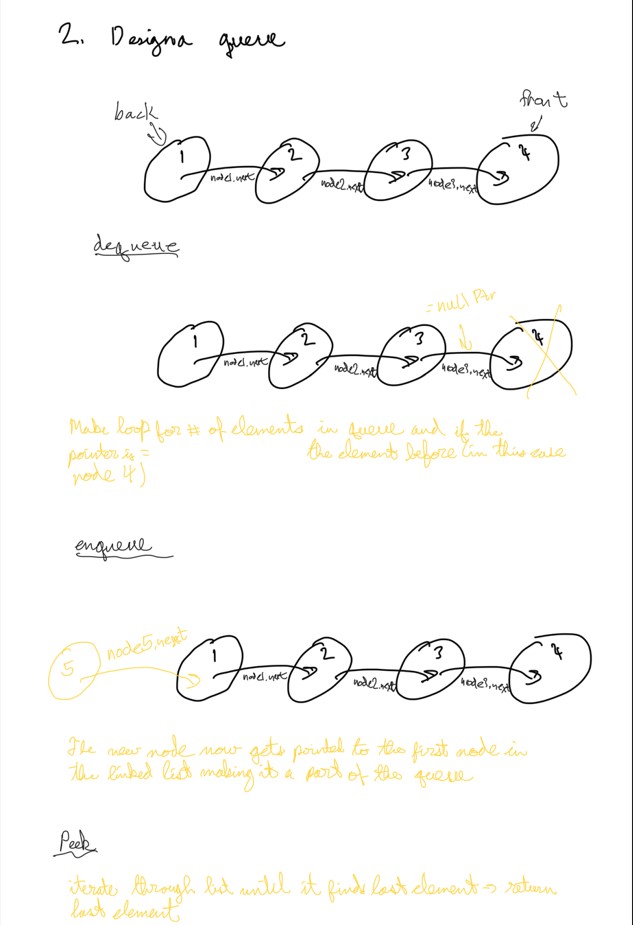 2. Design a queue
back
front
1 2 3 4
node1.next node2.next node3.next
dequeue
= null Ptr
1 2 3 4
node1.next node2.next node3.next
Make loop for # of elements in queue and if the
pointer is = the element before (in this case
node 4)
enqueue
5 node5.next 1 2 3 4
node1.next node2.next node3.next
The new node now gets pointed to the first node in
the linked list making it a part of the queue
Peek
iterate through list until it finds last element → return
last element